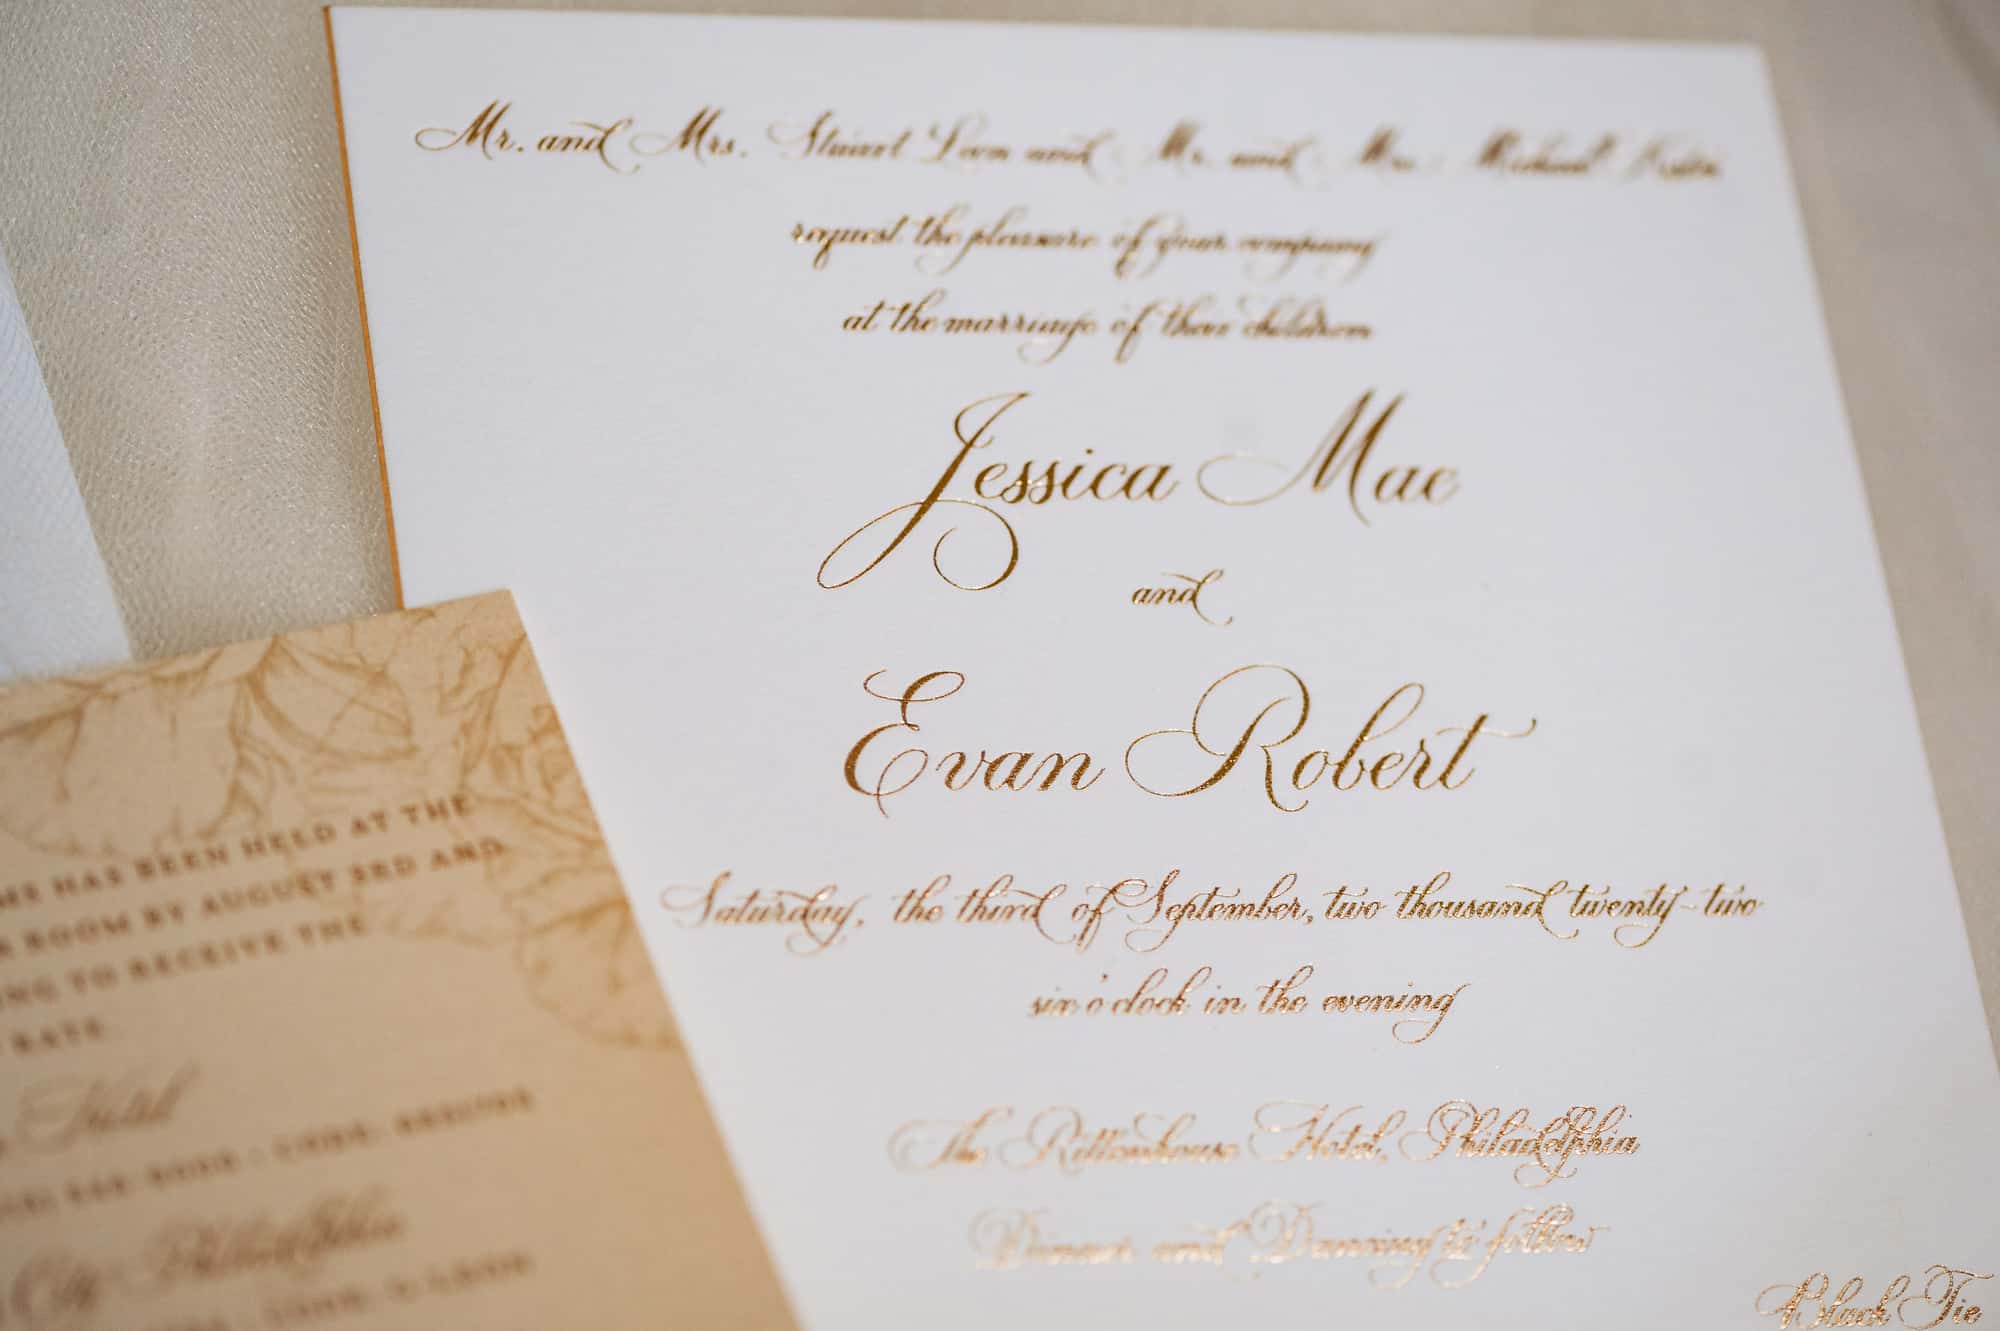 Mr. and Mrs. Stuart Leon and Mr. and Mrs. Michael
request the pleasure of your company
at the marriage of their children
Jessica Mae
and
Evan Robert
Saturday, the third of September, two thousand twenty-two
six o'clock in the evening
The Rittenhouse Hotel, Philadelphia
Dinner and Dancing to follow
Black Tie
HAS BEEN HELD AT THE
ROOM BY AUGUST 3RD AND
TO RECEIVE THE
RATE
Hotel
CODE:
Philadelphia
CODE: